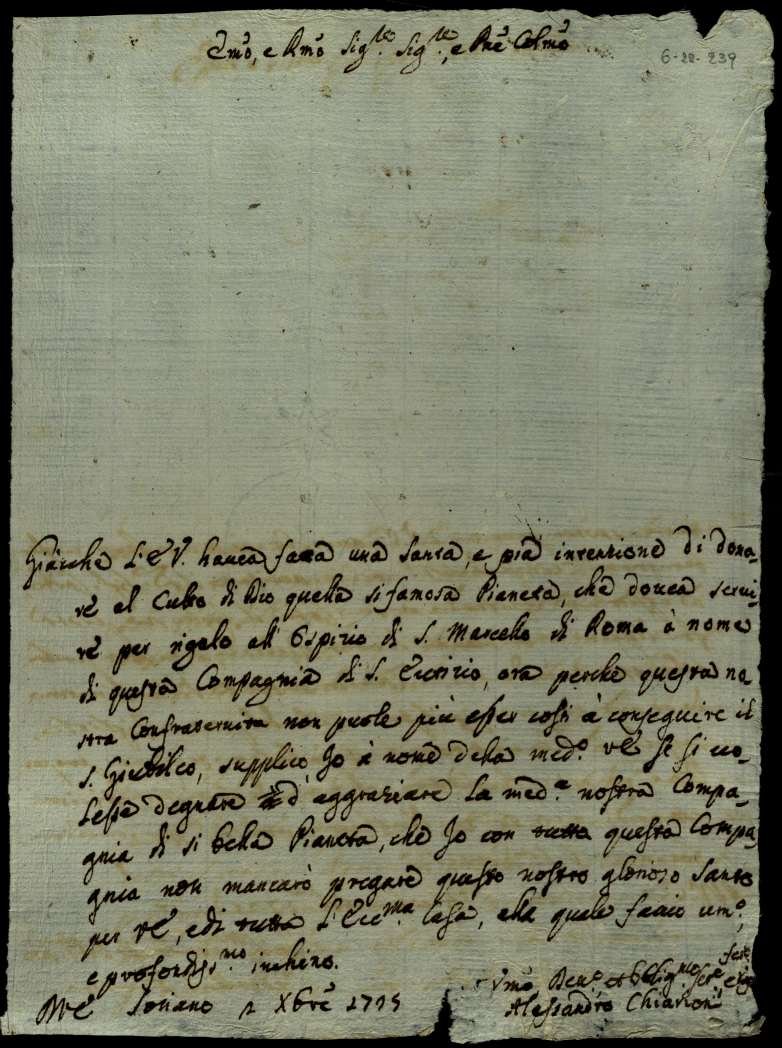 Emo, e Rmo Sigre. Sigre., e Pne Colmo
6-22-239
Giacche L'E V. havea fatta una santa, e pia intenzione di dona-
re al Culto di Dio quella si famosa Pianeta, che dovea servi-
re per rigalo all'Ospizio di S. Marcello di Roma à nome
di questa Compagnia di S. Eutizio, ora perche questa no-
stra Confraternita non puole più esser costi à conseguire il
S. Giubileo, supplico Io à nome della medª. VE se si vo-
lesse degnare d'aggraziare la medª. nostra Compa-
gnia di si bella Pianeta, che Io con tutta questa Compa
gnia non mancarò pregare questo nostro glorioso Santo
per VE, e di tutta L'Eccma Casa, alla quale faccio umº,
e profondissmo inchino.
VE Soriano 2 Xbre 1775
Vmo Devo et Obbligmo Serre
Alessandro Chiarioni